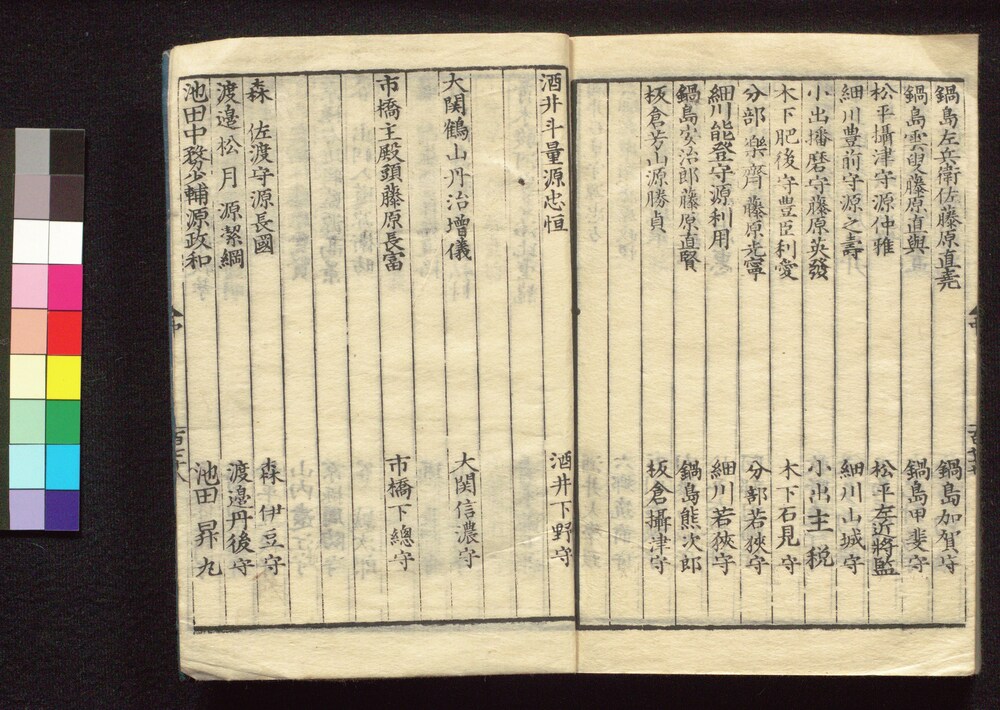 鍋島左兵衛佐藤原直堯　鍋島加賀守
鍋島雲叟藤原直與　鍋島甲斐守
松平攝津守源仲雅　松平左近將監
細川豊前守源之壽　細川山城守
小出播磨守藤原英發　小出主税
木下肥後守豊臣利愛　木下石見守
分部樂齊藤原光寧　分部若狹守
細川能登守源利用　細川若狹守
鍋島安治郎藤原直賢　鍋島熊次郎
板倉芳山源勝貞　板倉攝津守
酒井斗量源忠恒　酒井下野守
大関鶴山丹治增儀　大関信濃守
市橋主殿頭藤原長富　市橋下總守
森　佐渡守源長國　森伊豆守
渡邉松月源潔綱　渡邉丹後守
池田中務少輔源政和　池田昇丸